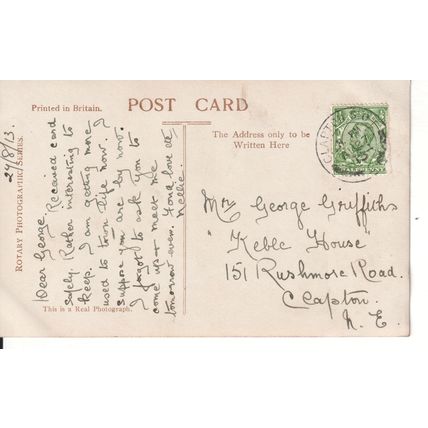 Printed in Britain.
POST CARD
The Address only to be
Written Here
ROTARY PHOTOGRAPHIC SERIES.
29/8/13.
Dear George
Received card
safely. Rather interesting to
keep. I am getting more
used to town life now. I
suppose you are by now.
I forgot to ask you to
come up & meet me
tomorrow even. Fond love
Nellie
This is a Real Photograph.
CLAPTON
Mr George Griffiths
"Keble House
151 Rushmore Road.
Clapton.
N. E.